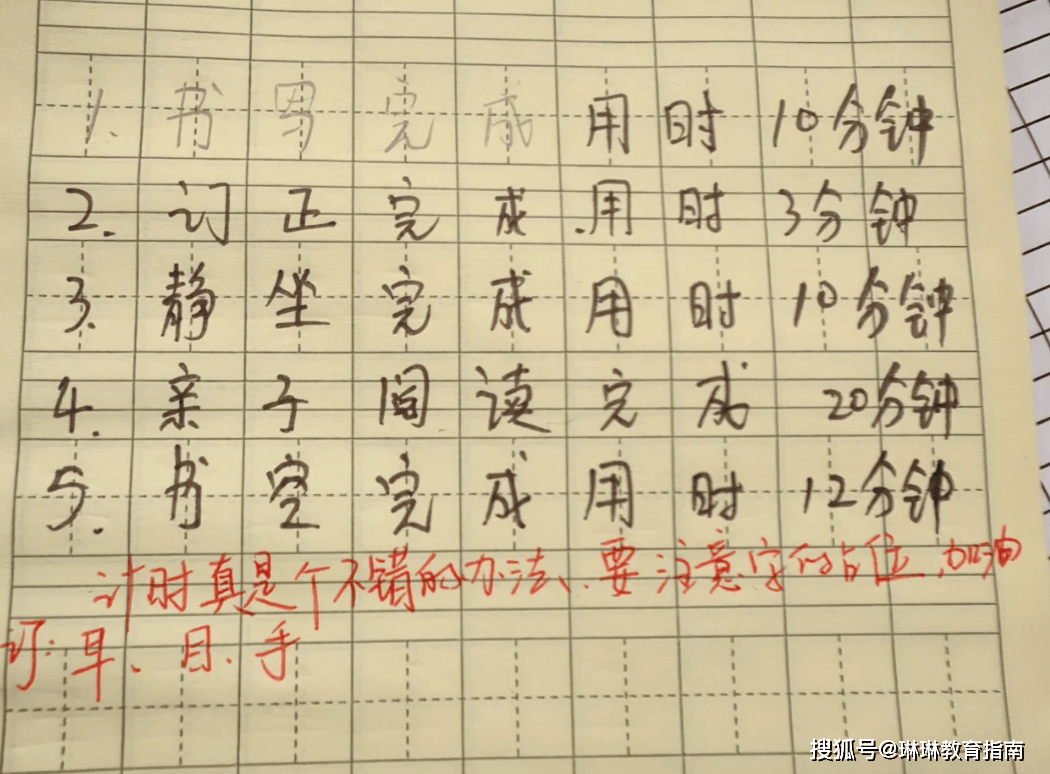 1. 书写完成用时 10分钟
2. 订正完成.用时 3分钟
3. 静坐完成用时 10分钟
4. 亲子阅读完成 20分钟
5. 书空完成用时 12分钟
计时真是个不错的办法、要注意字的占位,加油
订:早、目、手
搜狐号@琳琳教育指南